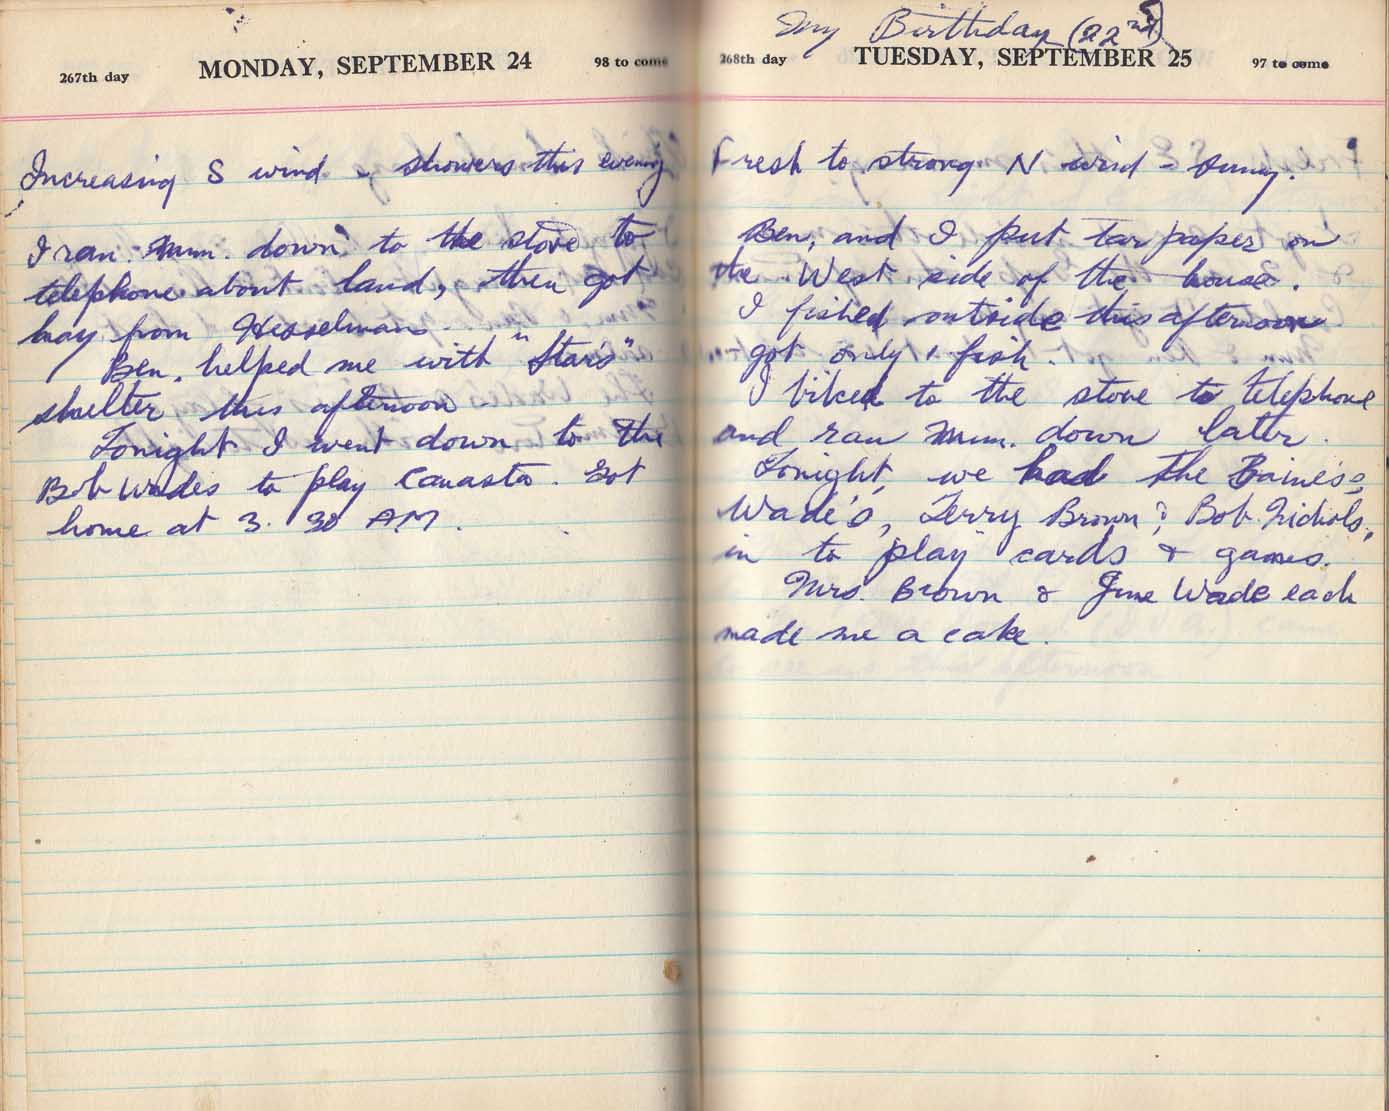 267th day MONDAY, SEPTEMBER 24 98 to come
Increasing S wind - showers this evening
I ran Mum. down to the store to
telephone about land, then got
hay from Hesselman.
Ben. helped me with "Star's"
shelter this afternoon
Tonight I went down to the
Bob Wades to play Canasta. Got
home at 3. 30 AM.
My Birthday (22nd)
268th day TUESDAY, SEPTEMBER 25 97 to come
Fresh to strong N wind - Sunny.
Ben, and I put tar paper on
the West side of the house.
I fished outside this afternoon
got only 1 fish.
I biked to the store to telephone
and ran Mum. down later.
Tonight, we had the Baines's,
Wade's, Terry Brown & Bob Nichols,
in to play cards & games.
Mrs. Brown & June Wade each
made me a cake.